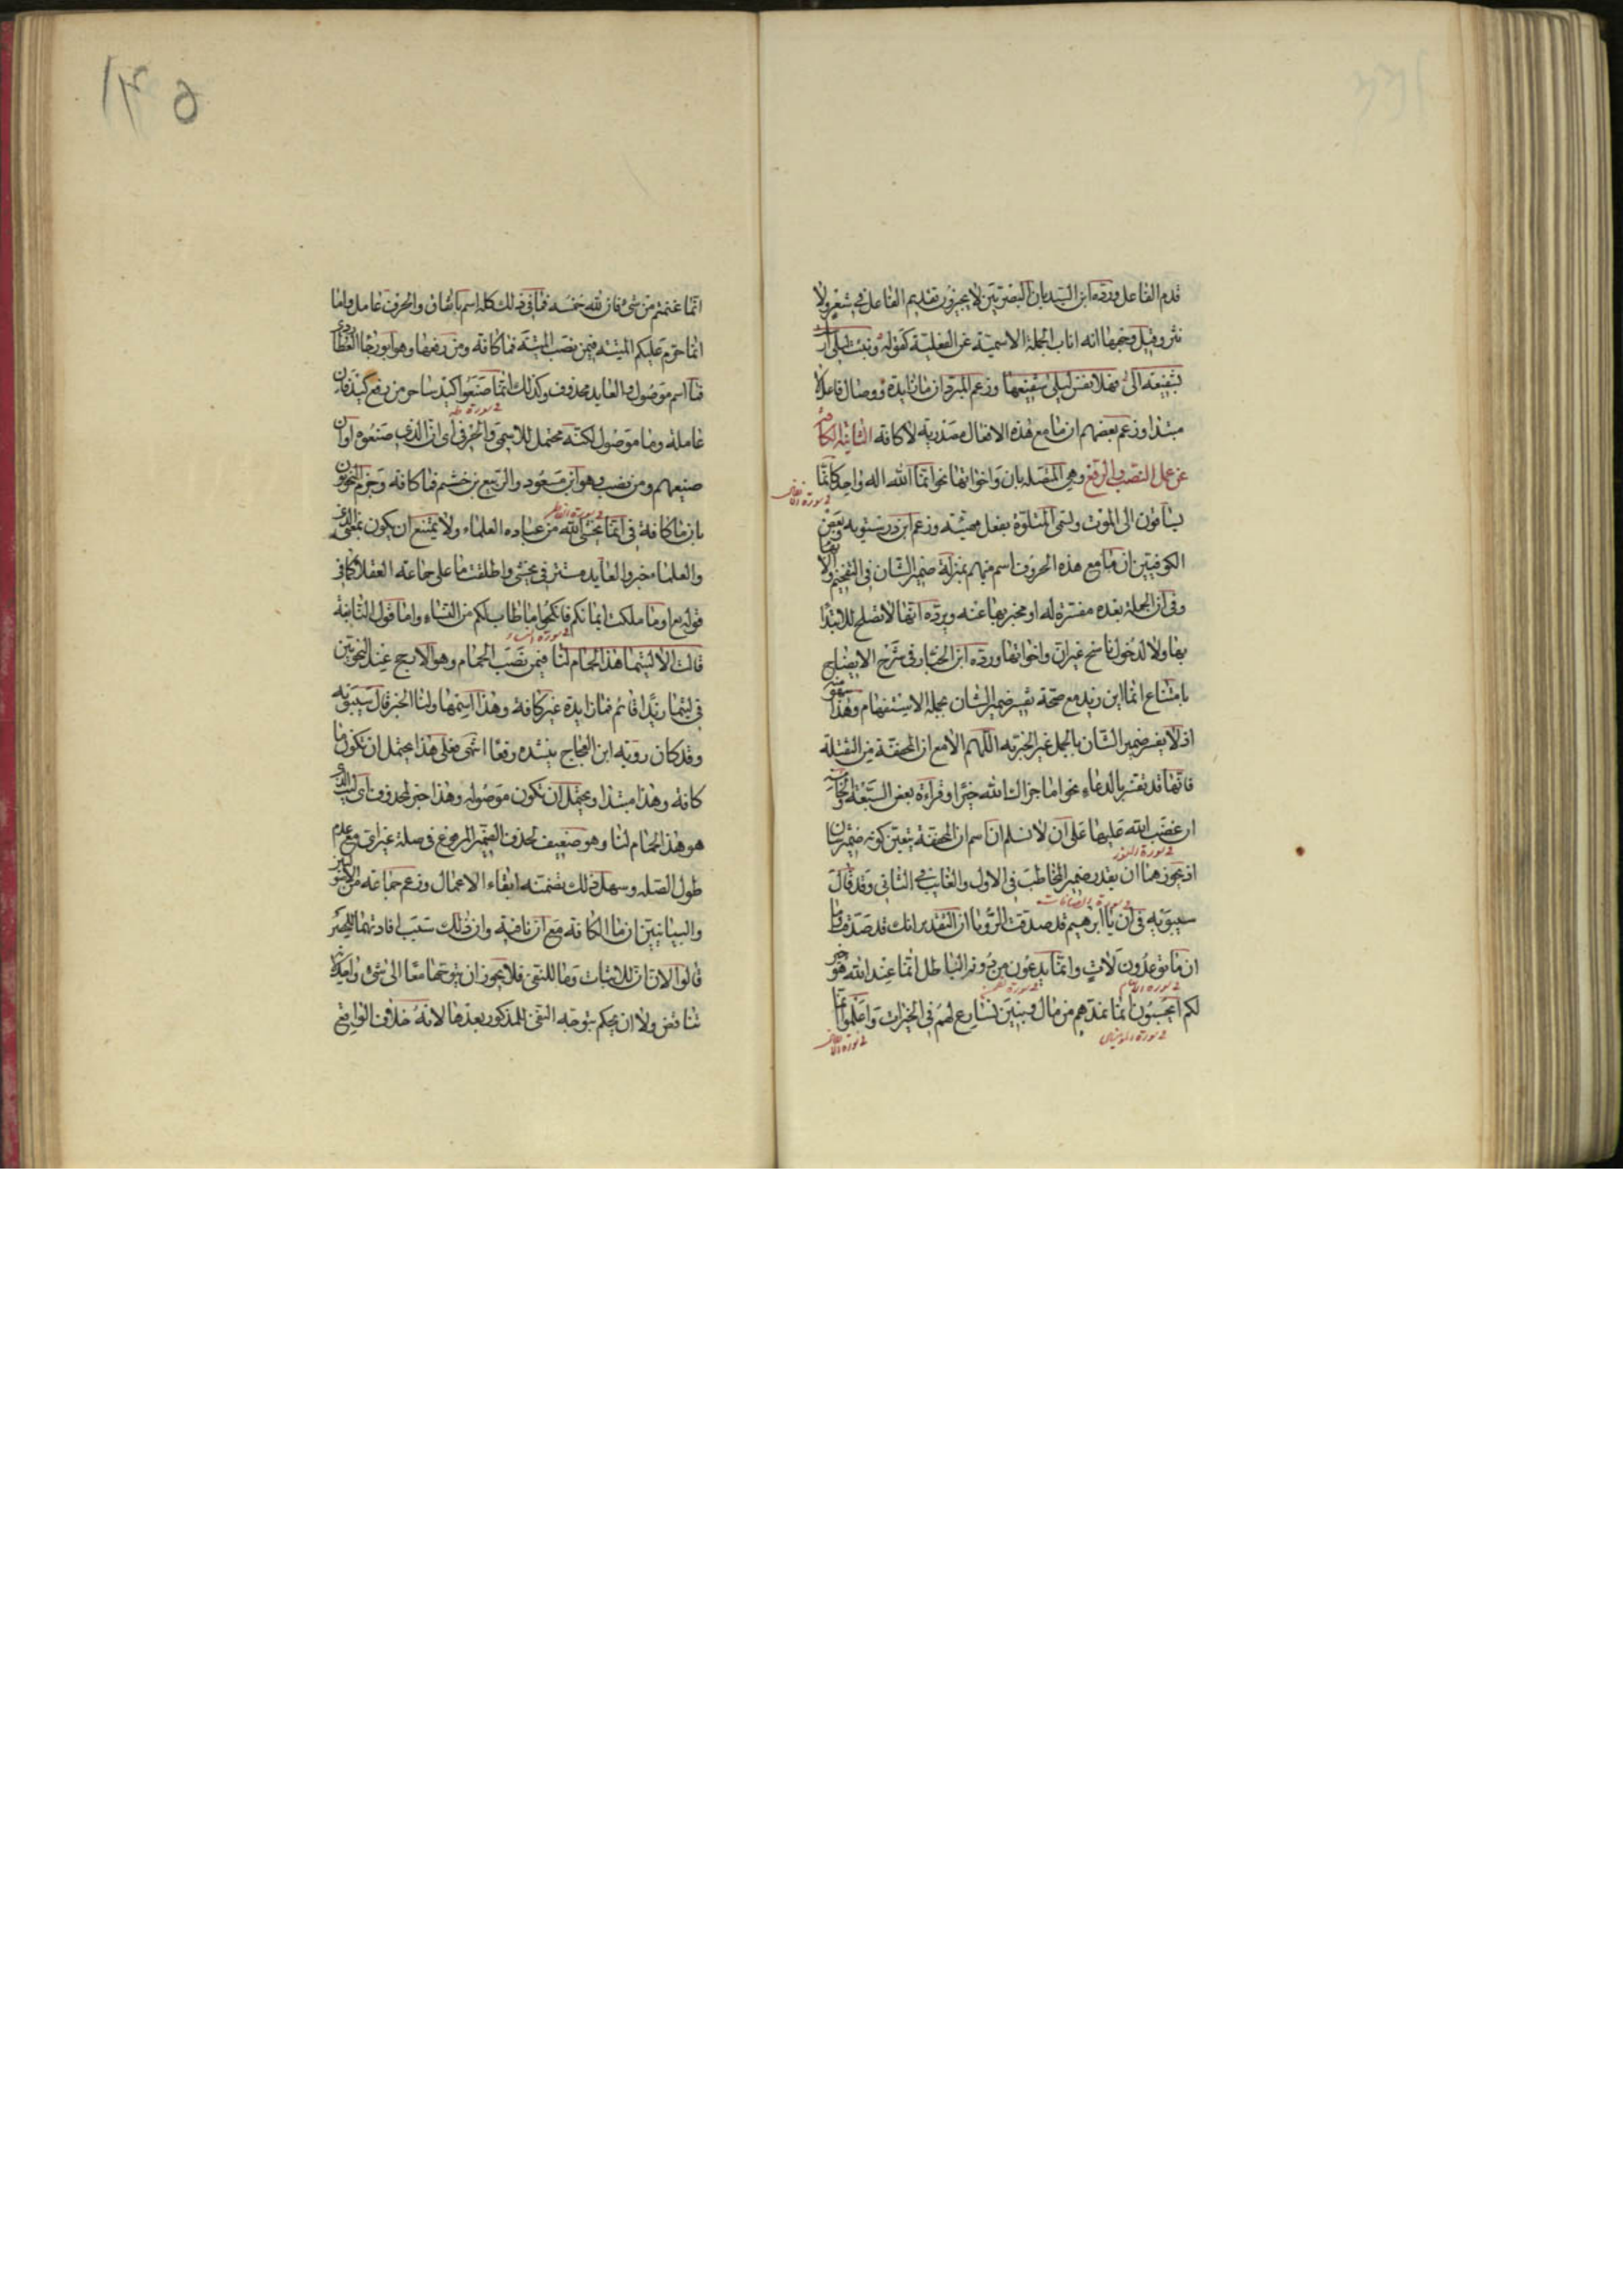 قدم الفاعل ورده ابن السيد بان البصريين لا يجيزون تقديم الفاعل في شعر ولا
نثر وقيل وجهها انه اناب الجملة الاسمية عن الفعلية كقوله ونبئت ليلى ارسلت
بشفيعه الى فهلا نفس ليلى شفيعها وزعم المبرد ان ما زايدة ووصال فاعل لا
مبتدا وزعم بعضهم ان ما مع هذه الافعال مصدرية لا كافة الثانية الكافة
عن عمل النصب والرفع وهي المتصلة بان واخواتها نحو انما الله اله واحد كانما
يساقون الى الموت وتسمى المتلوة بفعل مهيئة وزعم ابن درستويه وبعض
في سورة الانفال
الكوفيين ان ما مع هذه الحروف اسم مبهم بمنزلة ضمير الشان في التفخيم والابهام
وفي ان الجملة بعده مفسرة له او مخبر بها عنه ويرده انها لا تصلح للابتدا
بها ولا لدخول ناسخ غير ان واخواتها ورده ابن الخباز في شرح الايضاح
بامتناع انما اين زيد مع صحة تفسير ضمير الشان بجملة الاستفهام وهذا سهو منه
اذ لا يفسر ضمير الشان بالجمل غير الخبرية اللهم الا مع ان المخففة من الثقيلة
فانها قد تفسر بالدعاء نحو اما جزاك الله خيرا وقراءة بعض السبعة والخامسة
ان غضب الله عليها على ان لا نسلم ان اسم ان المخففة يتعين كونه ضمير شان
في سورة النور
اذ يجوز هنا ان يقدر ضمير المخاطب في الاول والغايب في الثاني وقد قال
سيبويه في ان يا ابرهيم قد صدقت الرؤيا ان التقدير انك قد صدقت واما
في سورة الصافات
ان ما توعدون لات وان ما يدعون من دونه الباطل انما عند الله هو خير
في سورة الانعام
لكم ايحسبون انما نمدهم من مال وبنين نسارع لهم في الخيرات واعلموا انما
في سورة المؤمنين
في سورة الانفال
انما غنمتم من شئ فان لله خمسه فما في ذلك كله اسم باتفاق والحرف عامل واما
انما حرم عليكم الميتة فيمن نصب الميتة فما كافة ومن رفعها وهو ابو رجا العطاردي
فما اسم موصول والعايد محذوف وكذلك انما صنعوا كيد ساحر من رفع كيد فان
في سورة طه
عاملة وما موصول لكنه محتمل للاسمي والحرفي اي ان الذي صنعوه او ان
صنعهم ومن نصب وهو ابن مسعود والربيع بن خثيم فما كافة وجزم النحويون
بان ما كافة في انما يخشى الله من عباده العلماء ولا يمتنع ان يكون بمعنى الذي
في سورة الفاطر
والعلما خبر والعايد مستتر في يخشى واطلقت ما على جماعة العقلا كما في
قوله تع او ما ملكت ايمانكم فانكحوا ما طاب لكم من النساء واما قول النابغة
في سورة النساء
قالت الا ليتما هذا الحمام لنا فيمن نصب الحمام وهو الارجح عند النحويين
في ليتما زيدا قائم فما زايدة غير كافة وهذا اسمها ولنا الخبر قال سيبويه
وقد كان رؤبة ابن العجاج ينشده رفعا انتهى فعلى هذا يحتمل ان تكون ما
كافة وهذا مبتدا ويحتمل ان تكون موصولة وهذا خبر لمحذوف اي ليت الذي
هو هذا الحمام لنا وهو ضعيف لحذف الضمير المرفوع في صلة غير اي مع عدم
طول الصلة وسهل ذلك تضمنه ابقاء الاعمال وزعم جماعة من الاصوليين
والبيانيين ان ما الكافة مع ان نافية وان ذلك سبب افادتها للحصر
قالوا لان ان للاثبات وما للنفي فلا يجوز ان يتوجها معا الى شئ واحد لانه
تناقض ولا ان يحكم بتوجه النفي للمذكور بعدها لانه خلاف الواقع